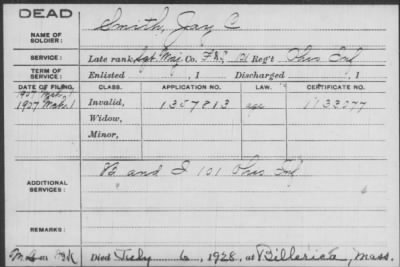 DEAD
NAME OF SOLDIER: Smith, Jay C
SERVICE: Late rank, Sgt. Maj Co. F.&S., 101 Reg't Ohio Inf
TERM OF SERVICE: Enlisted , 1 Discharged , 1
DATE OF FILING. CLASS. APPLICATION NO. LAW. CERTIFICATE NO.
1907 Mch 1 Invalid, 1357813 age 1133077
Widow,
Minor,
ADDITIONAL SERVICES: B and I 101 Ohio Inf
REMARKS:
Died July 6, 1928, at Billerica, Mass.